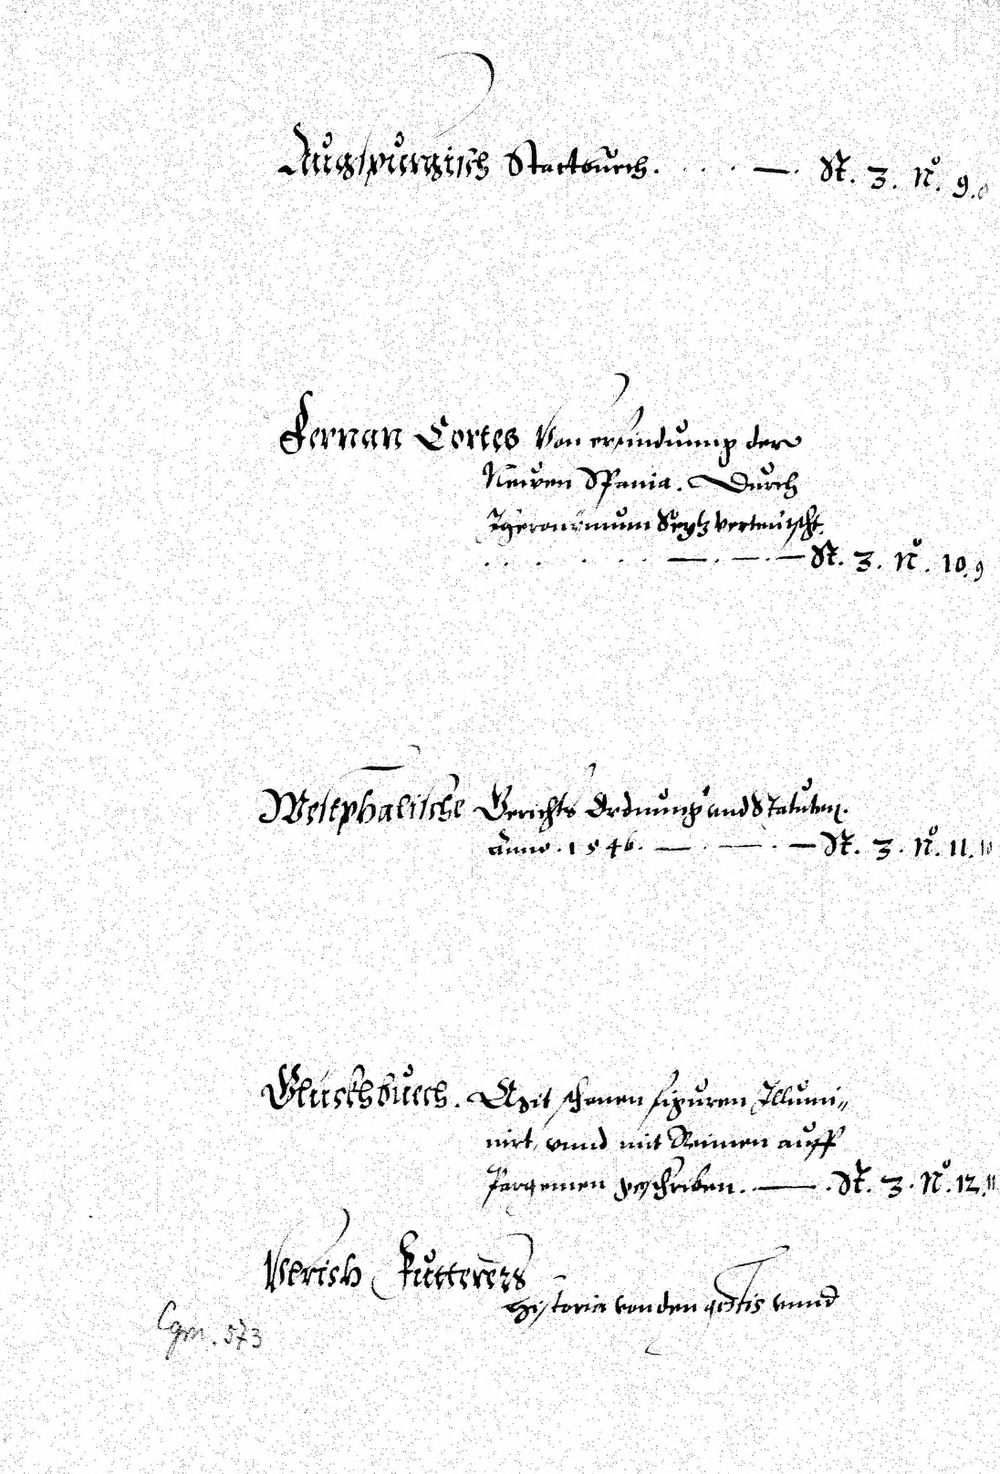 Augspurgisch Stattbuech. . . . — . St. 3. No. 9.
Fernan Cortes Von erfindunng der
Neüwen Spania. Durch
Iheronimum Seytz verteütscht.
. . . . . — . — . — St. 3. No. 10. 9
Westphalische Gerichts Ordnung und Statuten.
Anno . 1546. — . — . — St. 3. No. 11. 10
Glückhbuech. Mit schenen figuren Illumi=
nirt, vnnd mit Reimen auff
Pargemen geschriben. — . St. 3. No. 12. 11
Vlrich Putterers
Historia von den gestis vnnd
Cgm. 573